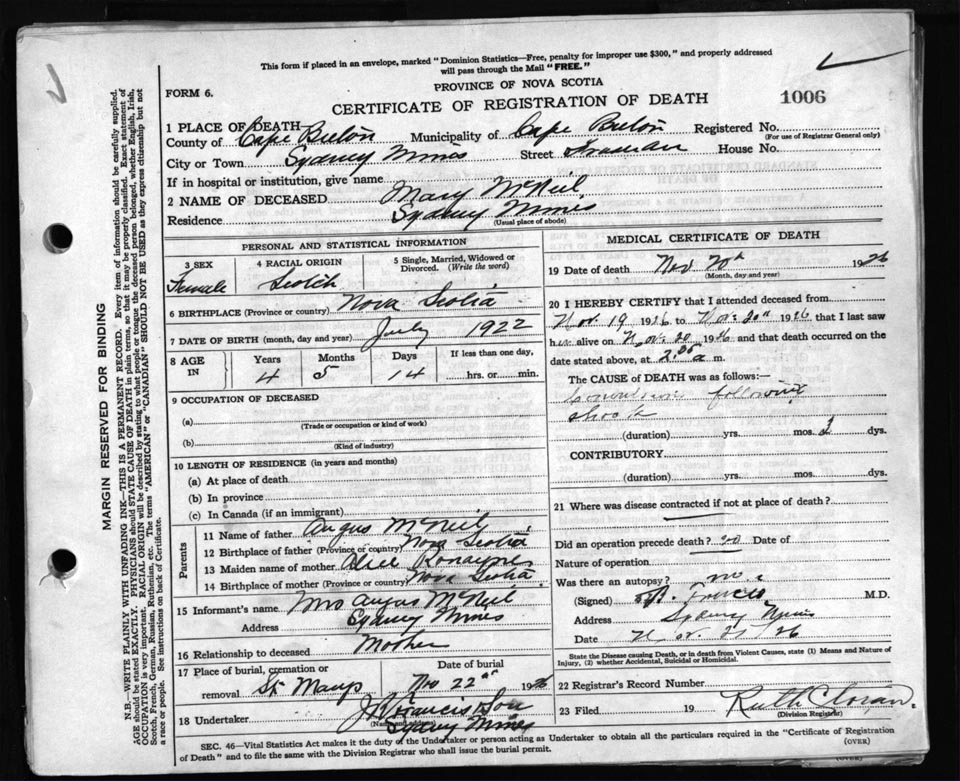 This form if placed in an envelope, marked "Dominion Statistics—Free, penalty for improper use $300," and properly addressed
will pass through the Mail "FREE."
FORM 6.
PROVINCE OF NOVA SCOTIA
CERTIFICATE OF REGISTRATION OF DEATH
1006
1 PLACE OF DEATH
County of Cape Breton Municipality of Cape Breton Registered No.
(For use of Registrar General only)
City or Town Sydney Mines Street House No.
If in hospital or institution, give name
2 NAME OF DECEASED Mary McNeil
Residence Sydney Mines
(Usual place of abode)
PERSONAL AND STATISTICAL INFORMATION
3 SEX 4 RACIAL ORIGIN 5 Single, Married, Widowed or
Divorced. (Write the word)
Female Scotch
6 BIRTHPLACE (Province or country) Nova Scotia
7 DATE OF BIRTH (month, day and year) July 1922
8 AGE IN Years Months Days If less than one day,
4 5 14 hrs. or min.
9 OCCUPATION OF DECEASED
(a)
(Trade or occupation or kind of work)
(b)
(Kind of industry)
10 LENGTH OF RESIDENCE (in years and months)
(a) At place of death
(b) In province
(c) In Canada (if an immigrant)
Parents
11 Name of father Angus McNeil
12 Birthplace of father (Province or country) Nova Scotia
13 Maiden name of mother Alice
14 Birthplace of mother (Province or country) Nova Scotia
15 Informant's name Mrs Angus McNeil
Address Sydney Mines
16 Relationship to deceased Mother
17 Place of burial, cremation or Date of burial
removal St Marys Nov 22nd 1926
18 Undertaker J R Francis Son
(Name and
Sydney Mines
MEDICAL CERTIFICATE OF DEATH
19 Date of death Nov 20th 1926
(Month, day and year)
20 I HEREBY CERTIFY that I attended deceased from
Nov. 19 1926 to Nov. 20th 1926 that I last saw
her alive on Nov. 20 1926 and that death occurred on the
date stated above, at 2.05 a m.
The CAUSE of DEATH was as follows:—
Convulsion following
shock
(duration) yrs. mos. 2 dys.
CONTRIBUTORY
(duration) yrs. mos. dys.
21 Where was disease contracted if not at place of death?
Did an operation precede death? no Date of
Nature of operation
Was there an autopsy? no.
(Signed) Francis M.D.
Address Sydney Mines
Date Nov. 21/26
State the Disease causing Death, or in death from Violent Causes, state (1) Means and Nature of
Injury, (2) whether Accidental, Suicidal or Homicidal.
22 Registrar's Record Number
23 Filed 19 Ruth
(Division Registrar)
SEC. 46—Vital Statistics Act makes it the duty of the Undertaker or person acting as Undertaker to obtain all the particulars required in the "Certificate of Registration
of Death" and to file the same with the Division Registrar who shall issue the burial permit. (OVER)
(OVER)
MARGIN RESERVED FOR BINDING
N.B.—WRITE PLAINLY WITH UNFADING INK—THIS IS A PERMANENT RECORD. Every item of information should be carefully supplied.
AGE should be stated EXACTLY. PHYSICIANS should STATE CAUSE OF DEATH in plain terms, so that it may be properly classified. Exact statement of
OCCUPATION is very important. RACIAL ORIGIN will be described by stating to what people or tongue the deceased person belonged, whether English, Irish,
Scotch, French, German, Russian, Ruthenian, etc. The terms "AMERICAN" or "CANADIAN" SHOULD NOT BE USED as they express citizenship but not
a race or people. See instructions on back of Certificate.